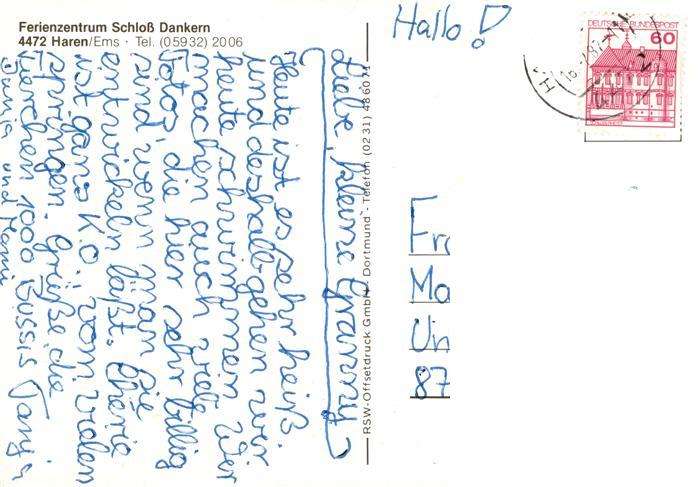 Ferienzentrum Schloß Dankern
4472 Haren/Ems · Tel. (05932) 2006
Hallo!
DEUTSCHE BUNDESPOST
60
Liebe kleine Grammy
Heute ist es sehr heiß.
und deshalb gehen wir
heute schwimmen. Wir
machen auch viele
Fotos, die hier sehr billig
sind wenn man sie
entwickeln läßt. Cherie
ist ganz K.O vom vielen
springen. Grüße die
1000 Bussis Tanja
und
RSW-Offsetdruck GmbH · Dortmund · Telefon (0231) 486071
Fr
Ma
Un
87